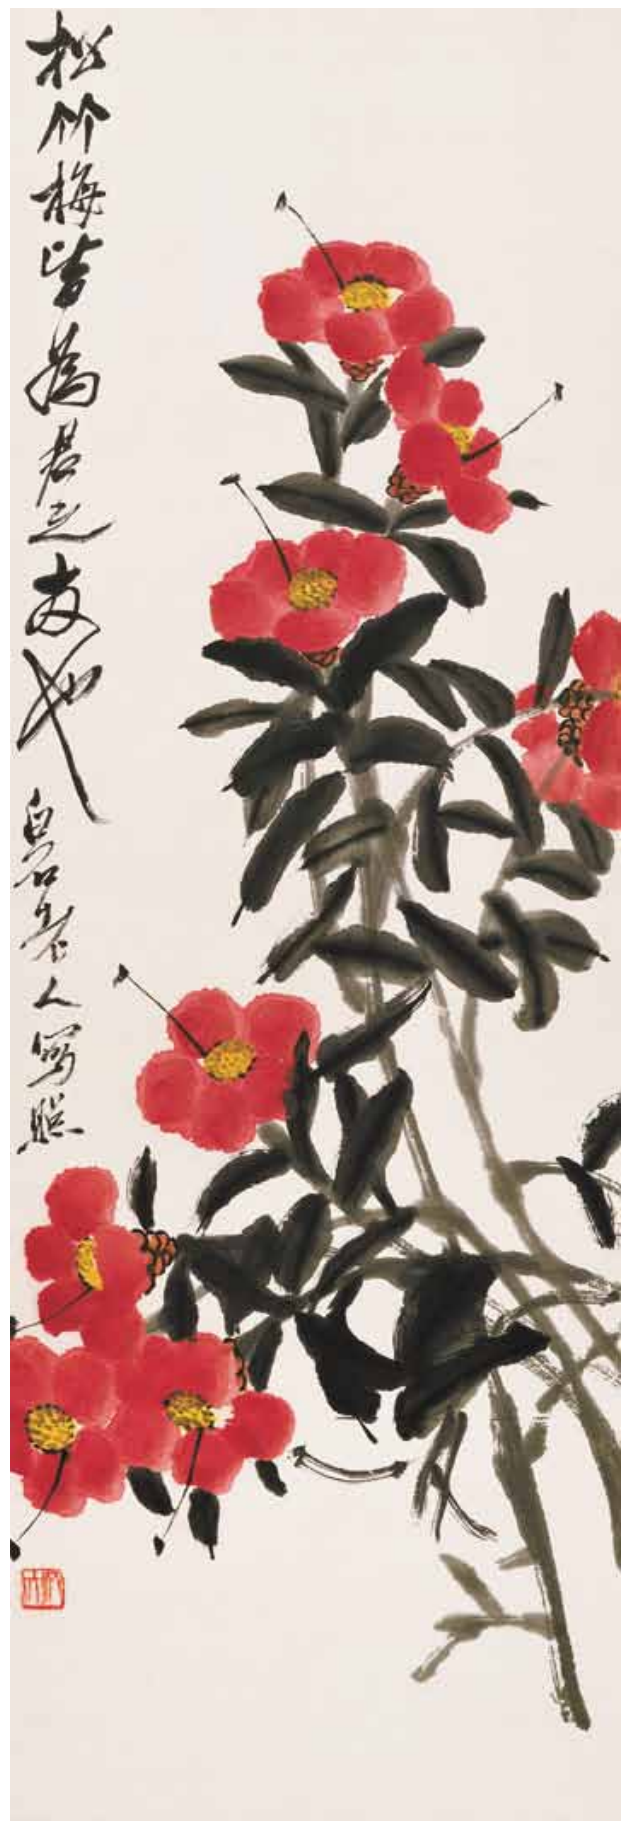 松竹梅皆為君之友也
白石老人寫照